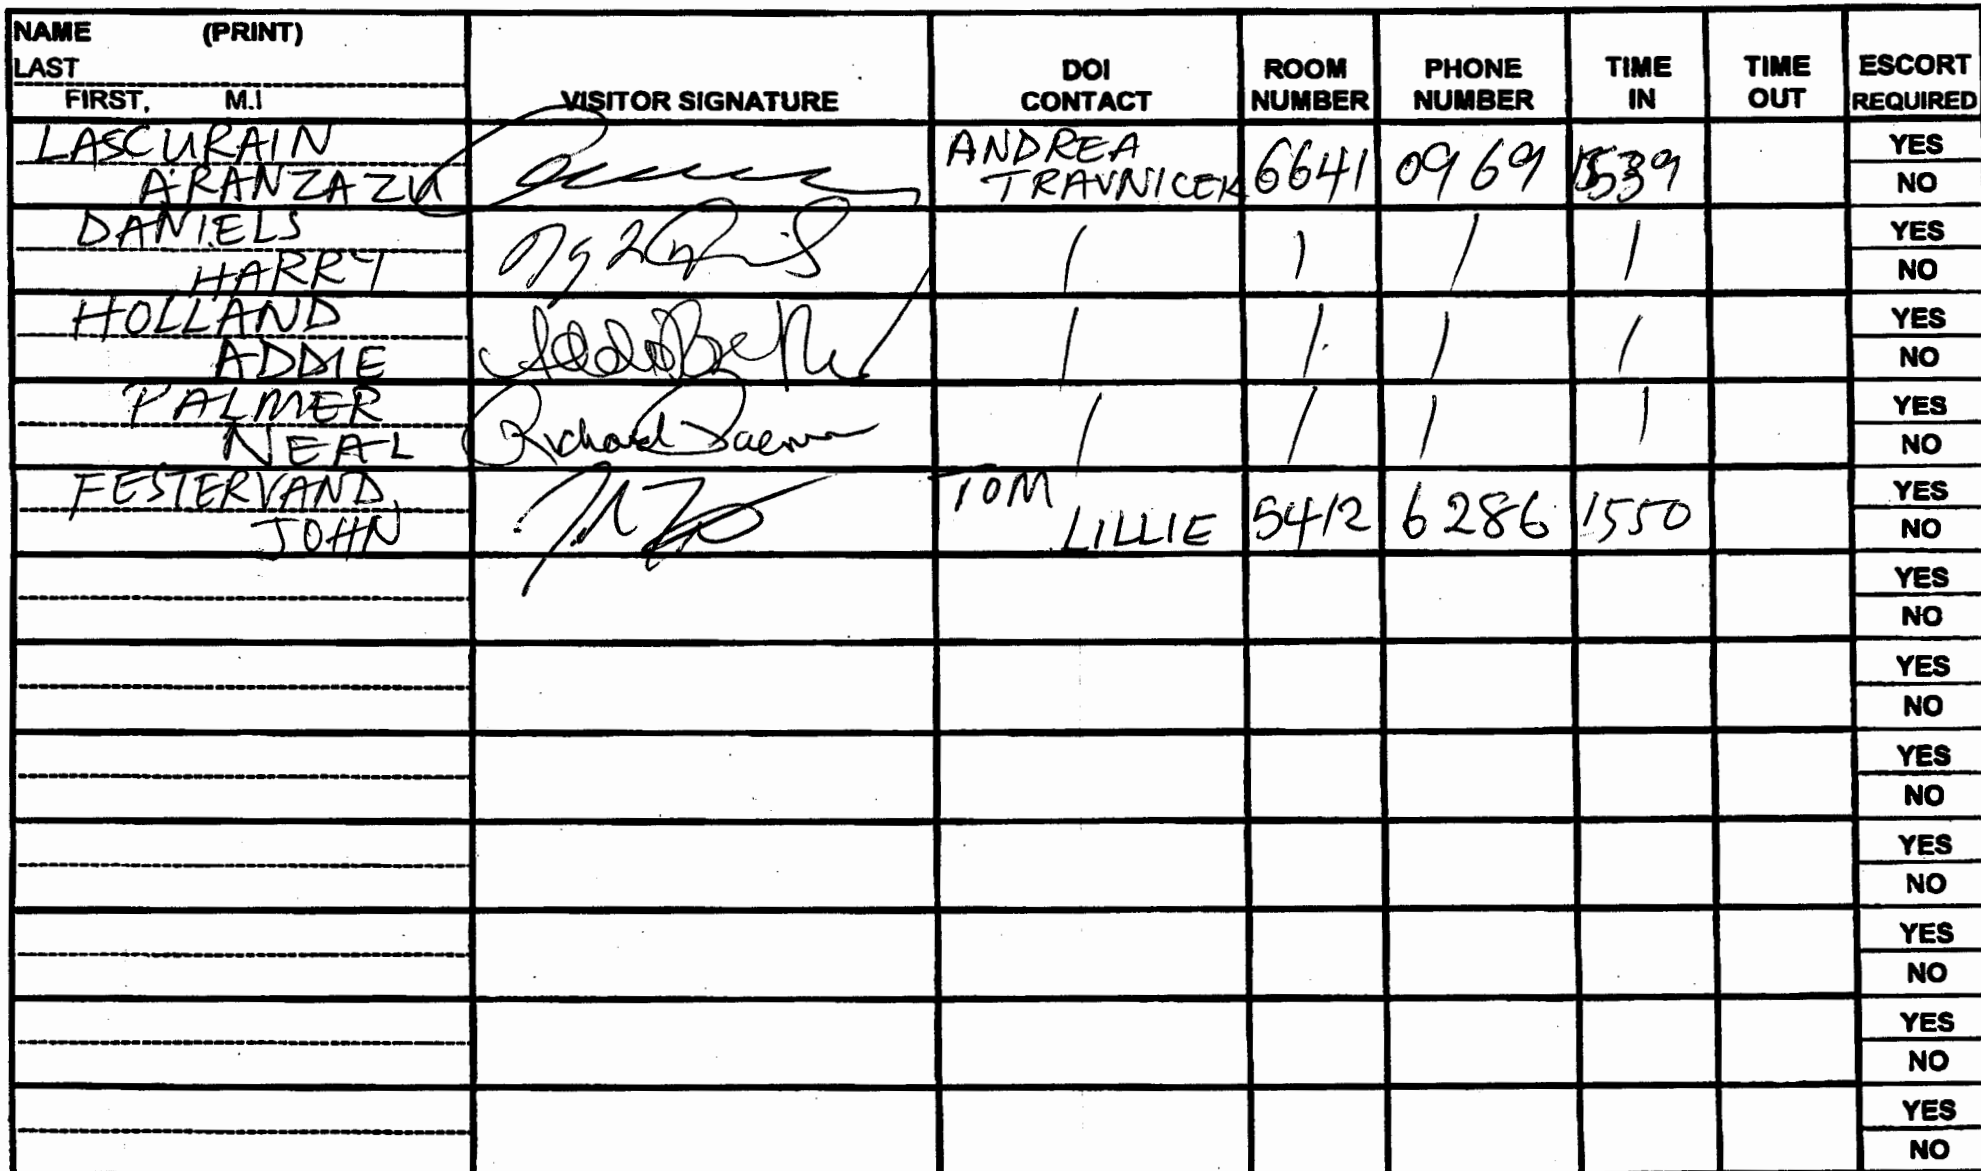 NAME (PRINT)
LAST
FIRST, M.I
VISITOR SIGNATURE
DOI CONTACT
ROOM NUMBER
PHONE NUMBER
TIME IN
TIME OUT
ESCORT REQUIRED
LASCURAIN
ARANZAZU
ANDREA
TRAVNICEK
6641 0969 1539
YES
NO
DANIELS
HARRY
/ / / /
YES
NO
HOLLAND
ADDIE
/ / / /
YES
NO
PALMER
NEAL
Richard
/ / / /
YES
NO
FESTERVAND,
JOHN
TOM
LILLIE
5412 6286 1550
YES
NO
YES
NO
YES
NO
YES
NO
YES
NO
YES
NO
YES
NO
YES
NO